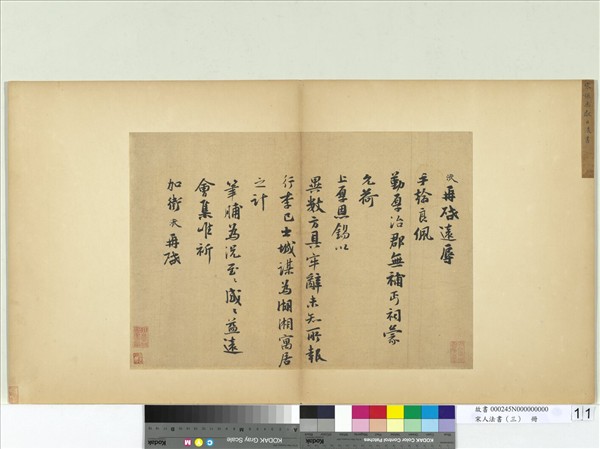 再啟遠辱
手捡良佩
勤厚治郡無補丐祠蒙
允荷
上厚恩錫以
異數方具牢辭未知所報
行李已出城謀為湖湘寓居
之計
筆脯為況至々感々益遠
會集唯祈
加衛 再啟
故書 000245N000000000
宋人法書（三） 冊
11
KODAK Gray Scale
KODAK Color Control Patches
Kodak